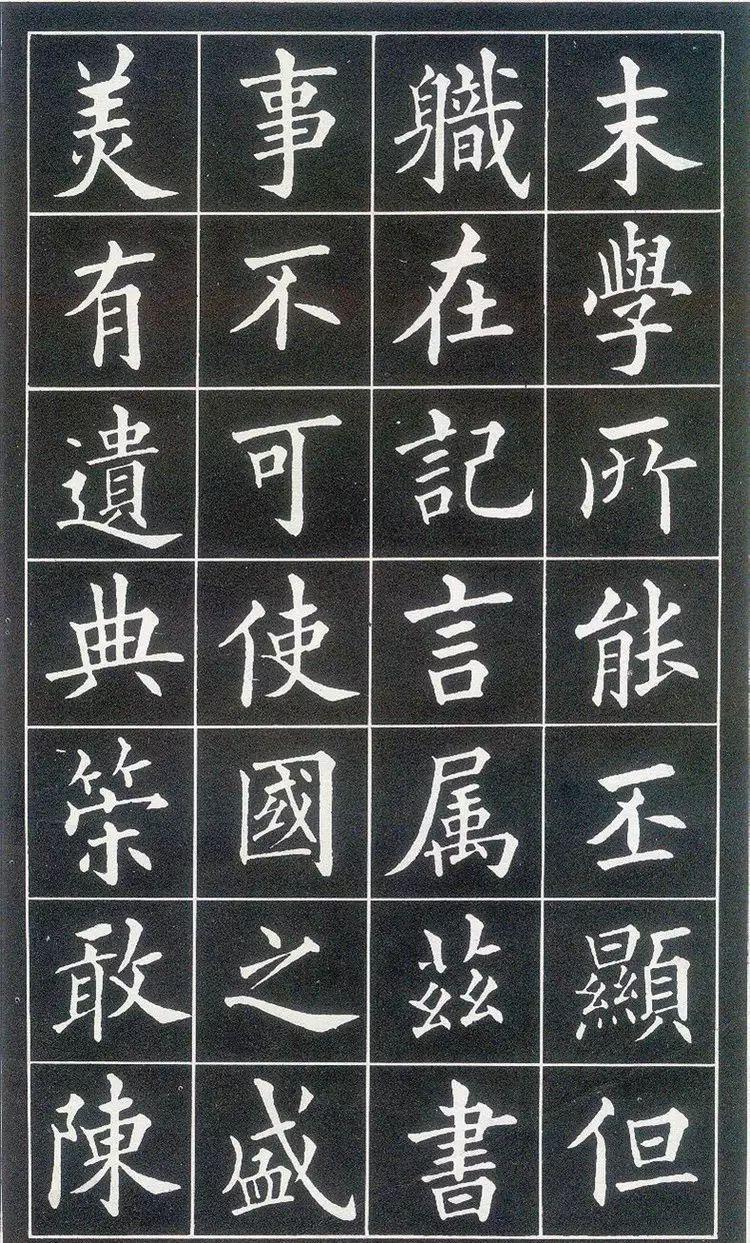 末學所能丕顯但
軄在記言属茲書
事不可使國之盛
羙有遺典策敢陳